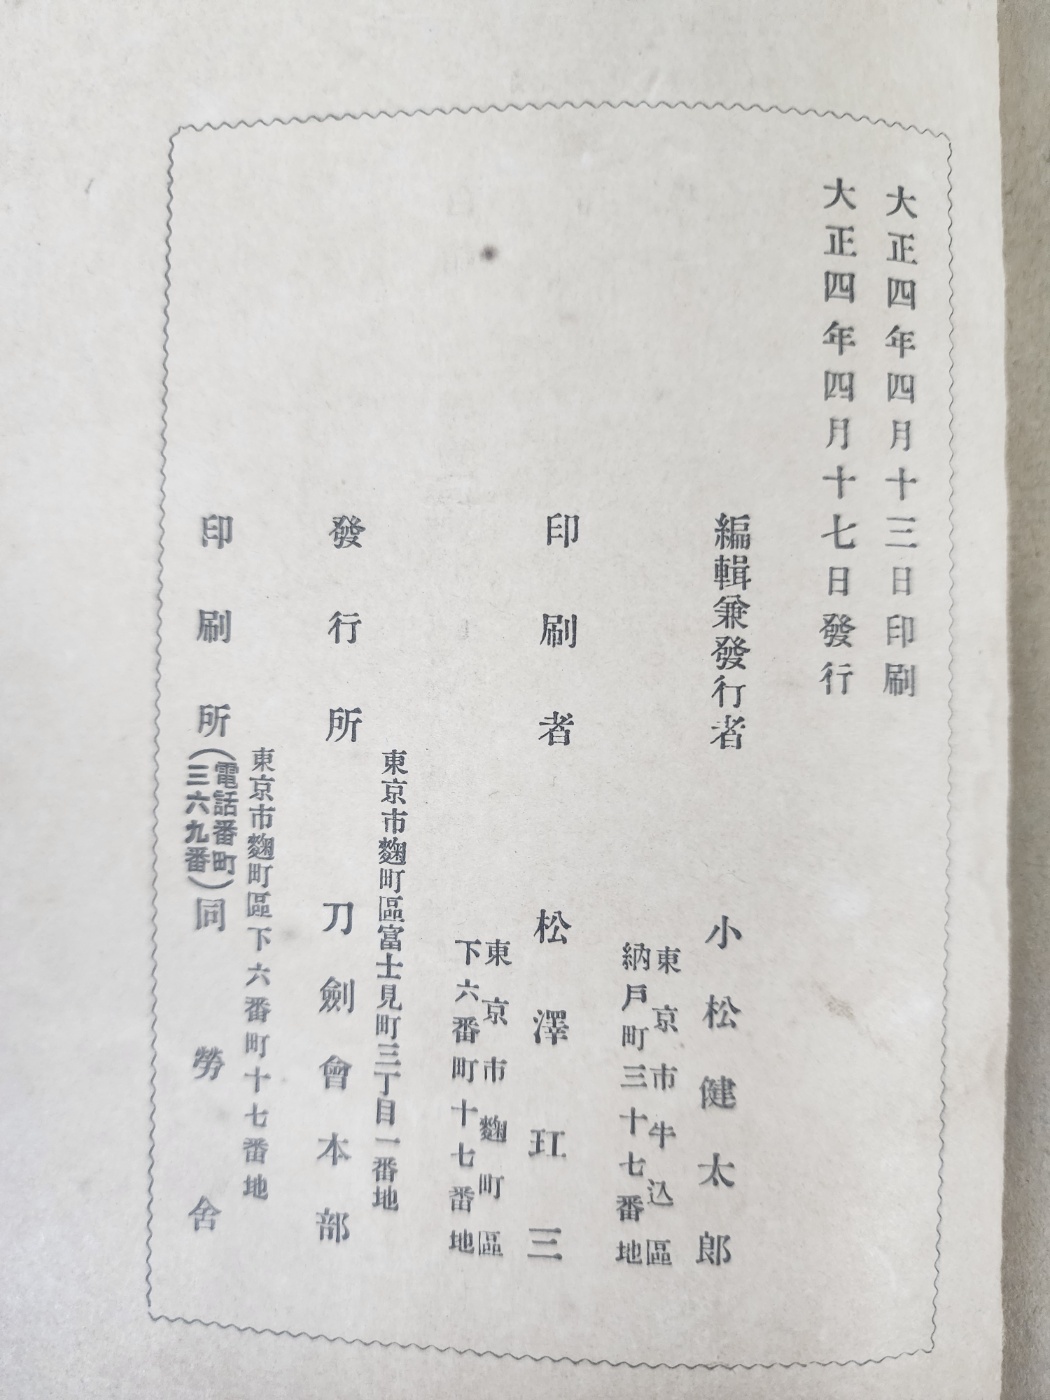 大正四年四月十三日印刷
大正四年四月十七日發行
編輯兼發行者 小松健太郎
東京市牛込區
納戸町三十七番地
印刷者 松澤玒三
東京市麴町區
下六番町十七番地
東京市麴町區富士見町三丁目一番地
發行所 刀劍會本部
東京市麴町區下六番町十七番地
印刷所(電話番町三六九番)同勞舍